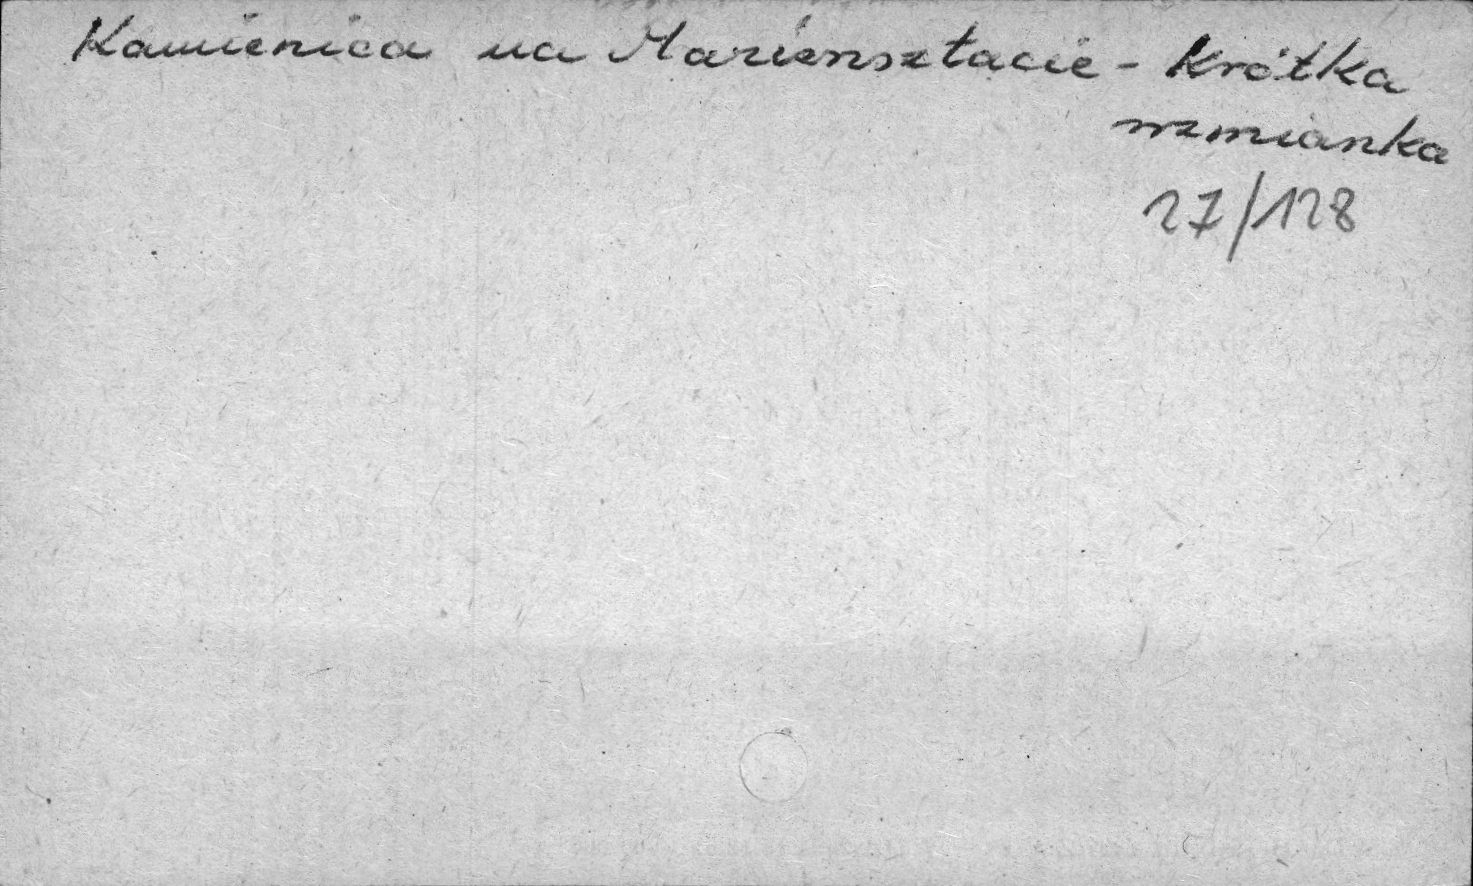 Kamienica na Mariensztacie - Krótka
wzmianka
27/128